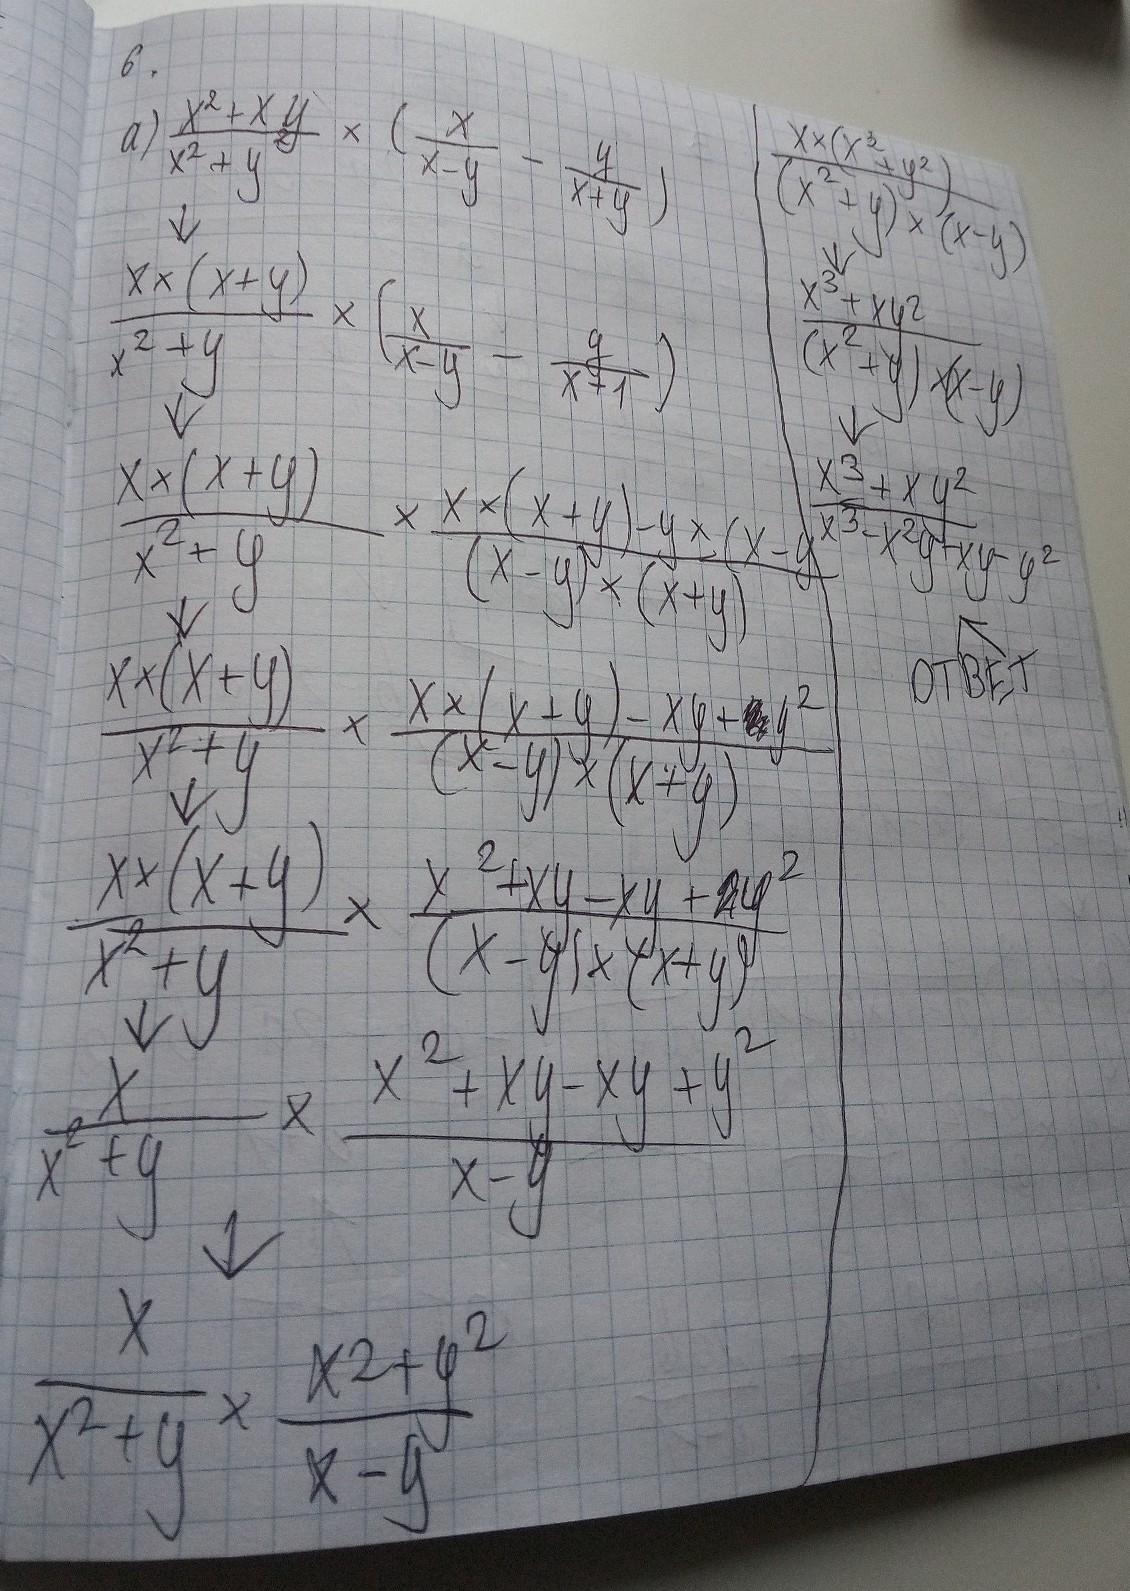 6.
а) (x² + xy)/(x² + y²) × (x/(x-y) - y/(x+y))
↓
x×(x+y)/(x²+y) × (x/(x-y) - y/(x+1))
↓
x×(x+y)/(x²+y) × (x×(x+y)-y×(x-y)/((x-y)×(x+y))
↓
x×(x+y)/(x²+y) × (x×(x+y)-xy+y²)/((x-y)×(x+y))
↓
x×(x+y)/(x²+y) × (x²+xy-xy+y²)/((x-y)×(x+y))
↓
x/(x²+y) × (x²+xy-xy+y²)/(x-y)
↓
x/(x²+y) × (x2+y²)/(x-y)
x×(x³+y²)/((x²+y)×(x-y))
↓
(x³+xy²)/((x²+y)×(x-y))
↓
(x³+xy²)/(x³-x²y+xy-y²)
ОТВЕТ